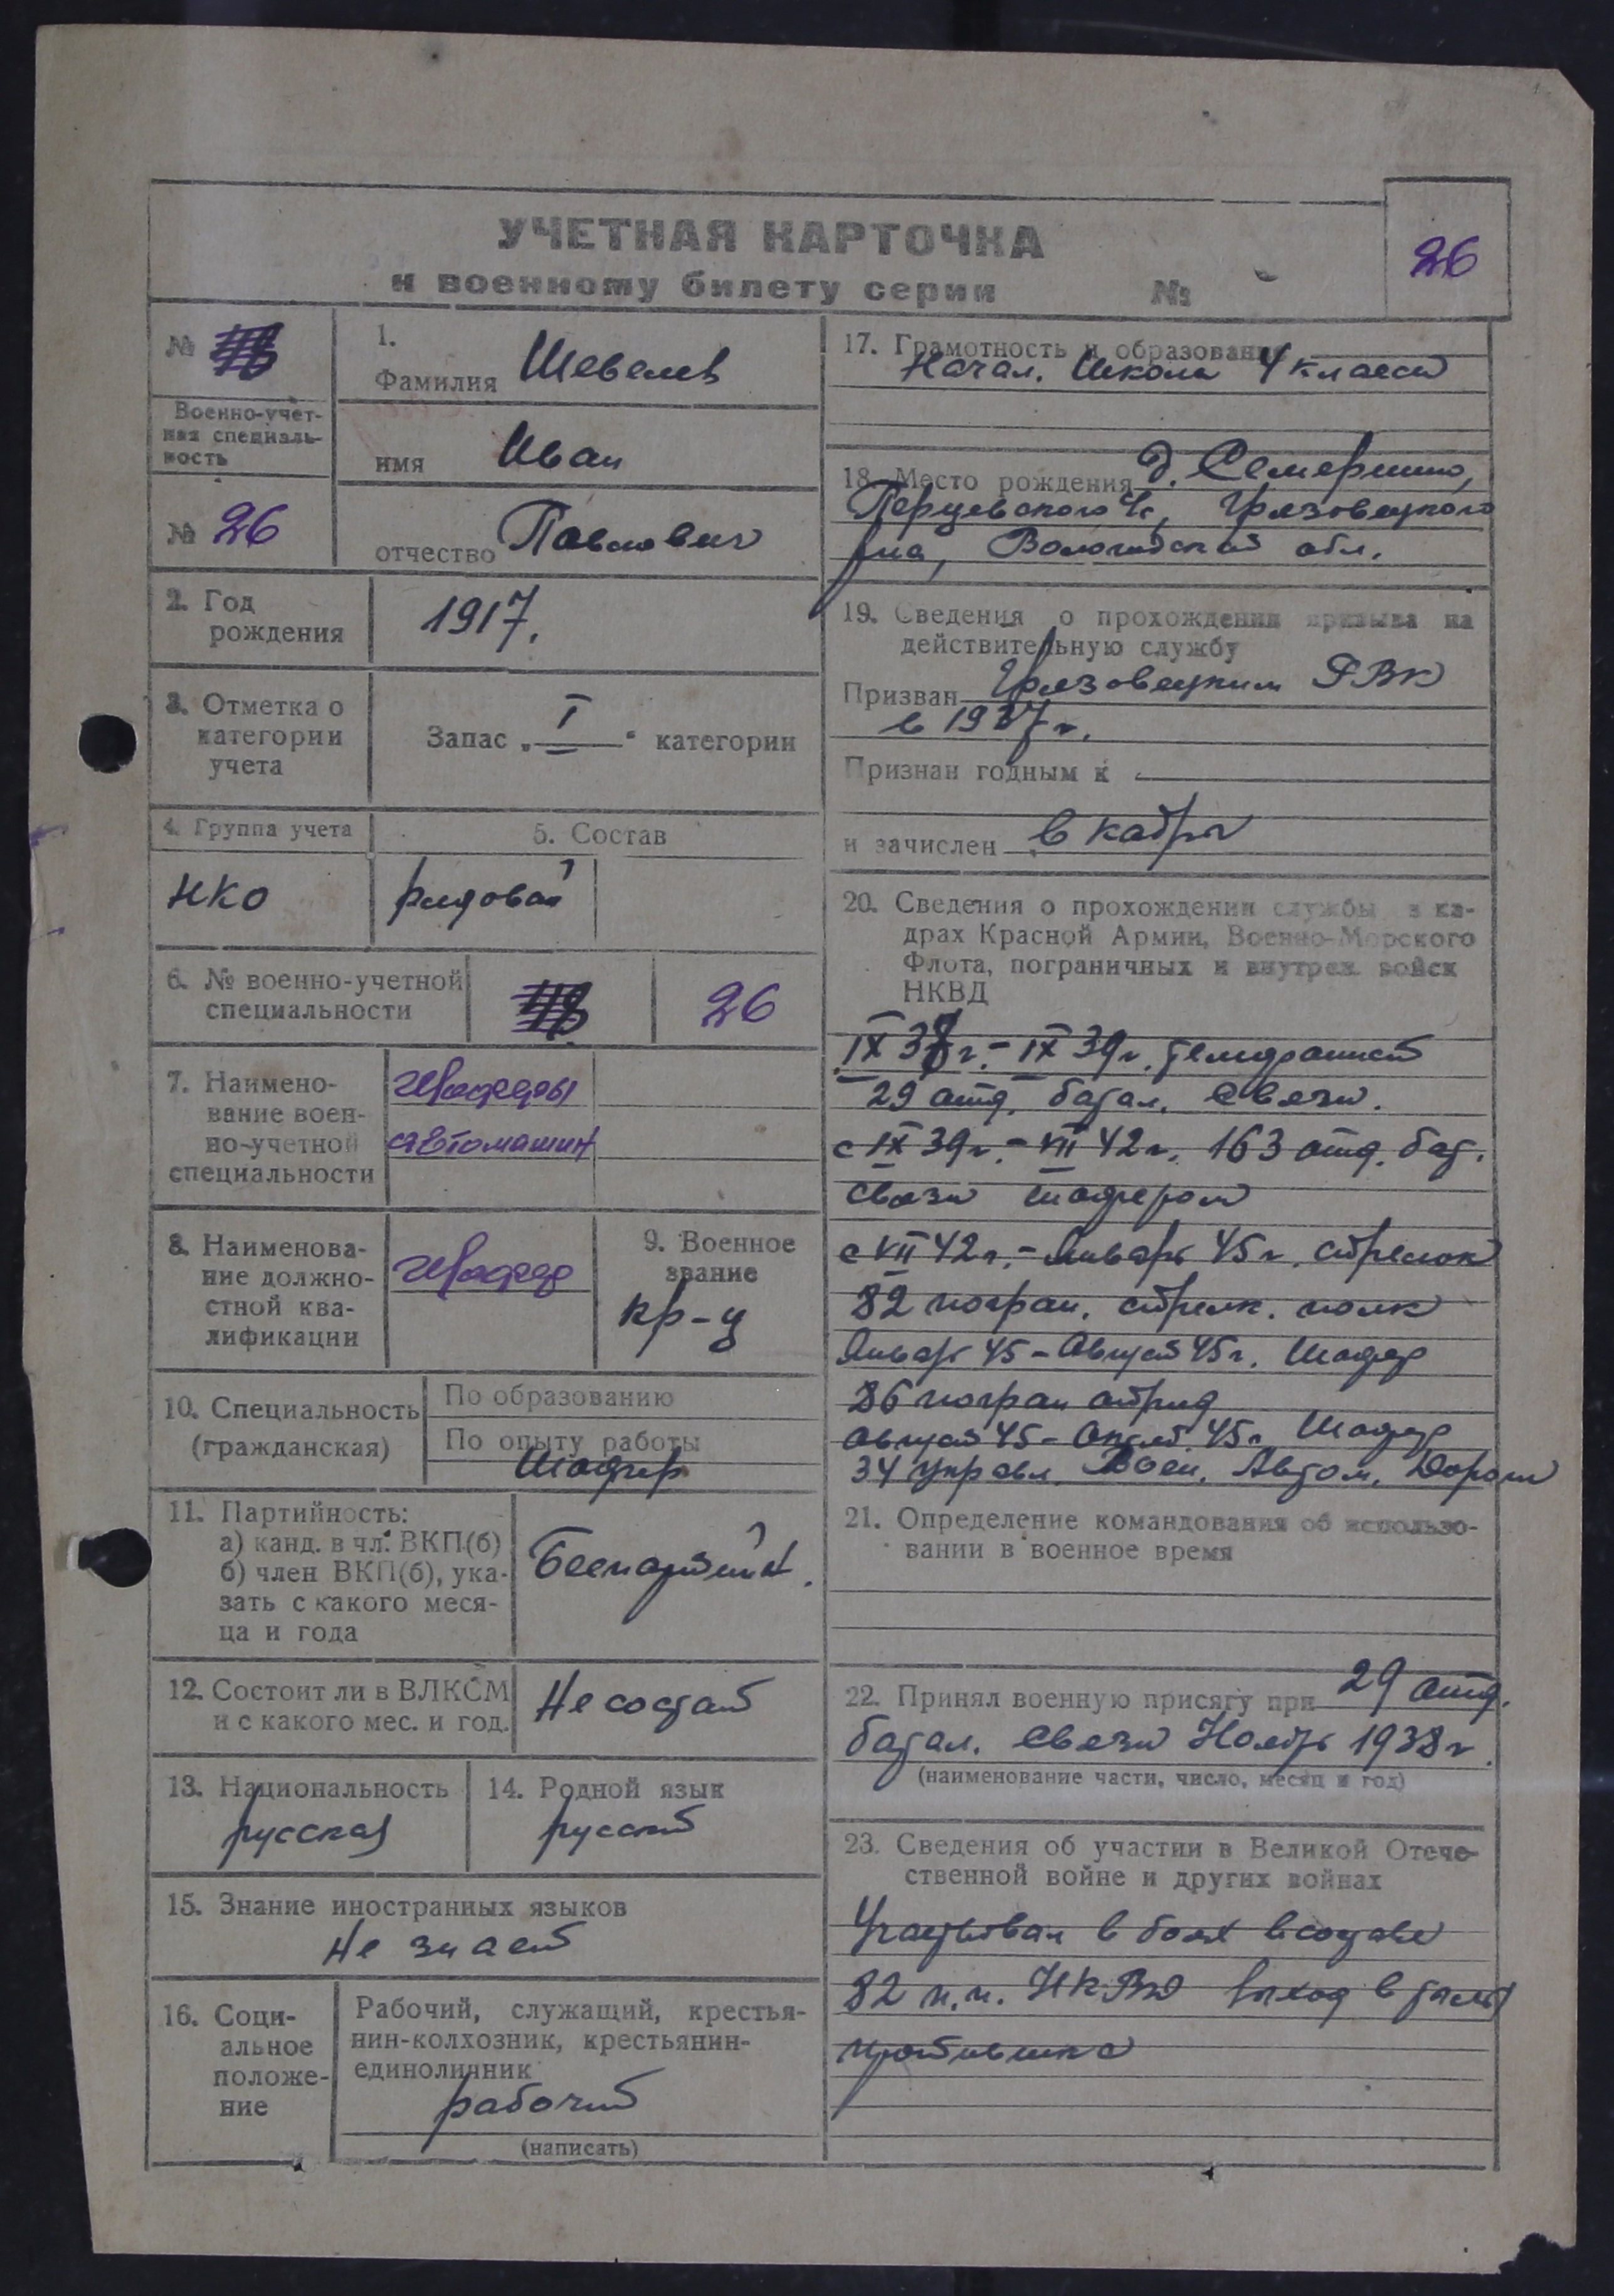 УЧЕТНАЯ КАРТОЧКА
к военному билету серии №
26
№
Военно-учет-
ная специаль-
ность
№ 26
1.
Фамилия Шевелев
имя Иван
отчество Павлович
2. Год
рождения
1917.
3. Отметка о
категории
учета
Запас „I“ категории
4. Группа учета
5. Состав
НКО
рядовой
6. № военно-учетной
специальности
26
7. Наимено-
вание воен-
но-учетной
специальности
Шоферы
автомашин
8. Наименова-
ние должно-
стной ква-
лификации
Шофер
9. Военное
звание
кр-ц
10. Специальность
(гражданская)
По образованию
По опыту работы
Шофер
11. Партийность:
а) канд. в чл. ВКП(б)
б) член ВКП(б), ука-
зать с какого меся-
ца и года
Беспартийн.
12. Состоит ли в ВЛКСМ
и с какого мес. и год.
Не состоит
13. Национальность
русская
14. Родной язык
русский
15. Знание иностранных языков
Не знает
16. Соци-
альное
положе-
ние
Рабочий, служащий, крестья-
нин-колхозник, крестьянин-
единоличник
рабочий
(написать)
17. Грамотность и образование
Начал. Школа 4 класса
18. Место рождения д.
Перцевского с/с, Грязовецкого
р-на, Вологодской обл.
19. Сведения о прохождении призыва на
действительную службу
Призван Грязовецким РВК
в 1937 г.
Признан годным к
и зачислен в кадры
20. Сведения о прохождении службы в ка-
драх Красной Армии, Военно-Морского
Флота, пограничных и внутрен. войск
НКВД
IX 38 г. - IX 39 г. телефонист
29 отд. батал. связи.
с IX 39 г. - VII 42 г. 163 отд. бат.
связи шофером
с VII 42 г. - Январь 45 г. стрелок
82 погран. стрелк. полк
Январь 45 - Август 45 г. Шофер
86 погран отряд
Август 45 - Октяб. 45 г Шофер
34 управл. Воен. Автом. Дороги
21. Определение командования об использо-
вании в военное время
22. Принял военную присягу при 29 отд.
батал. связи Ноябрь 1938 г.
(наименование части, число, месяц и год)
23. Сведения об участии в Великой Отече-
ственной войне и других войнах
Участвовал в боях в составе
82 п.п. НКВД выход в тылы
противника